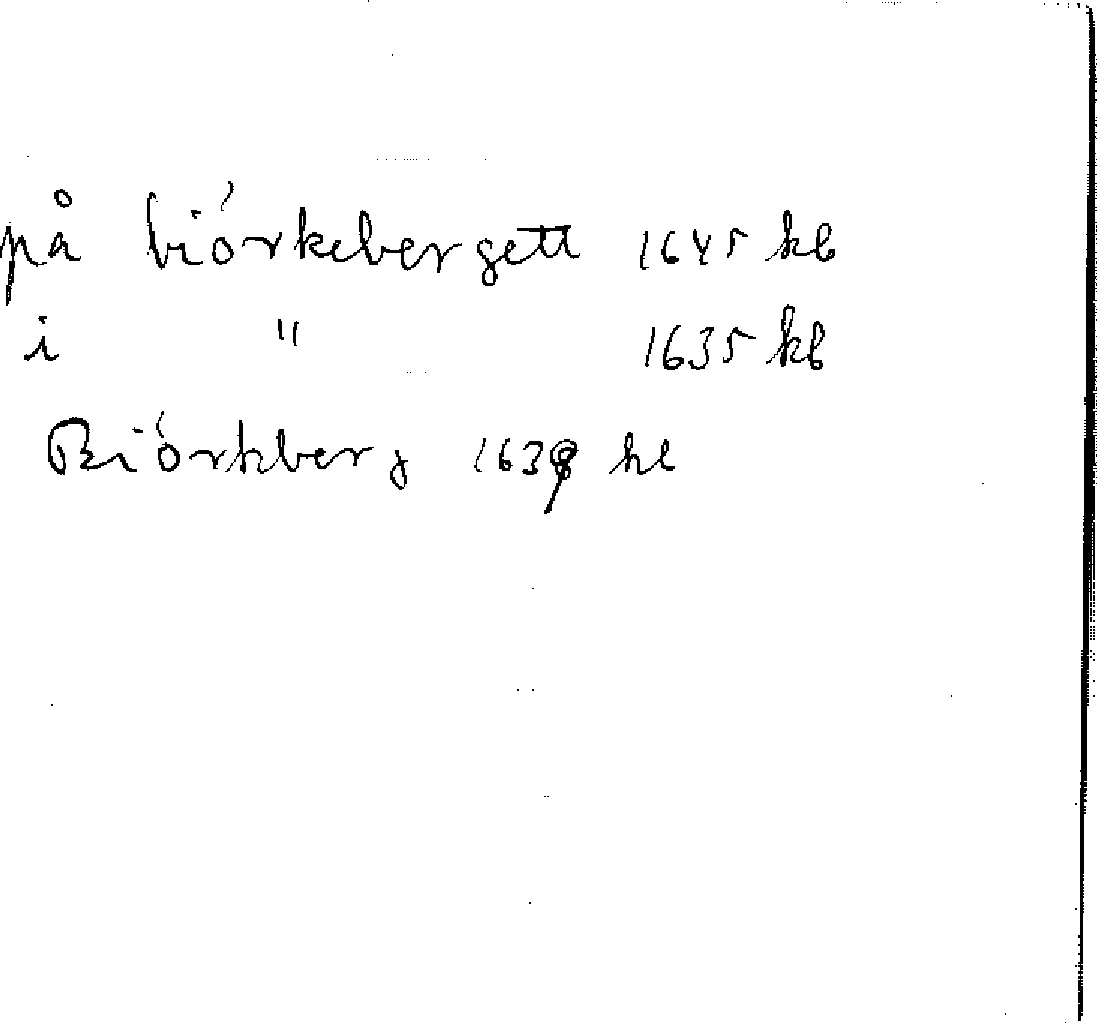 på biörkebergett 1645 kb
i " 1635 kb
Biörkberg 1639 kl